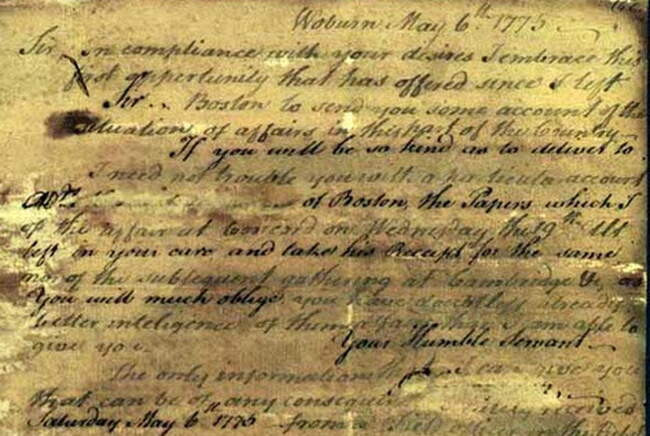 Woburn May 6th 1775
Sir In compliance with your desires I embrace this
first opportunity that has offered since I left
Sir Boston to send you some account of the
situation of affairs in this part of the Country
If you will be so kind as to deliver to
I need not trouble you with a particular account
of Boston, the Papers which I
of the affair at Concord on Wednesday the 19th Ult
left in your care and take his Receipt for the same
nor of the subsequent gathering at Cambridge &c, as
You will much oblige you have doubtless already
better inteligence of them than I am able to
give you.
Your Humble Servant
The only information I can give you
that can be of any consequence received
Saturday May 6th 1775 from